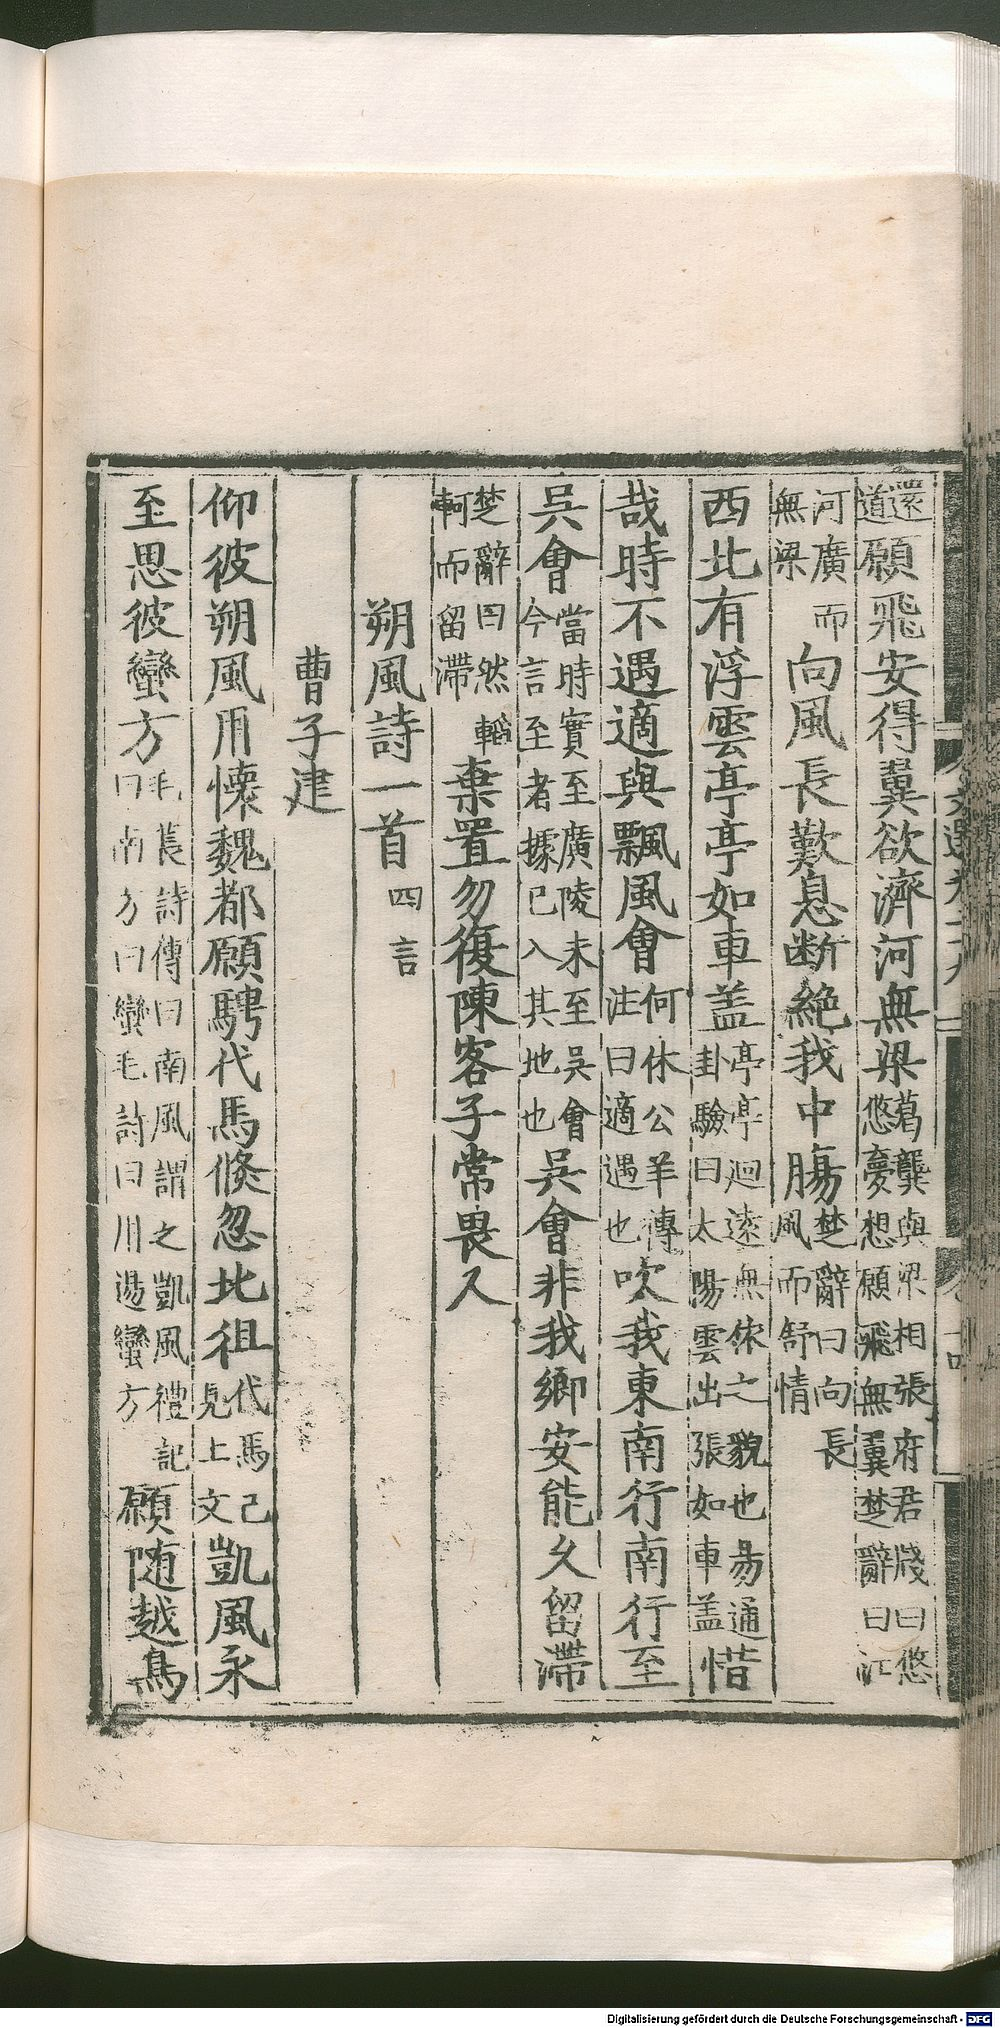 還道願飛安得翼欲濟河無梁葛龔與梁相張府君牋曰悠悠夢想願飛無翼楚辭曰江
河廣而無梁向風長歎息断絶我中膓楚辭曰向長風而舒情
西北有浮雲亭亭如車盖亭亭迥遠無依之貌也易通卦驗曰太陽雲出張如車盖惜
哉時不遇適與飄風會何休公羊傳注曰適遇也吹我東南行南行至
吳會當時實至廣陵未至吳會今言至者據已入其地也吳會非我鄉安能乆留滯
楚辭曰然轗軻而留滯棄置勿復陳客子常畏人
朔風詩一首四言
曹子建
仰彼朔風用懷魏都願騁代馬倐忽北徂代馬已見上文凱風永
至思彼蠻方毛萇詩傳曰南風謂之凱風禮記曰南方曰蠻毛詩曰用逷蠻方願随越鳥
Digitalisierung gefördert durch die Deutsche Forschungsgemeinschaft - DFG